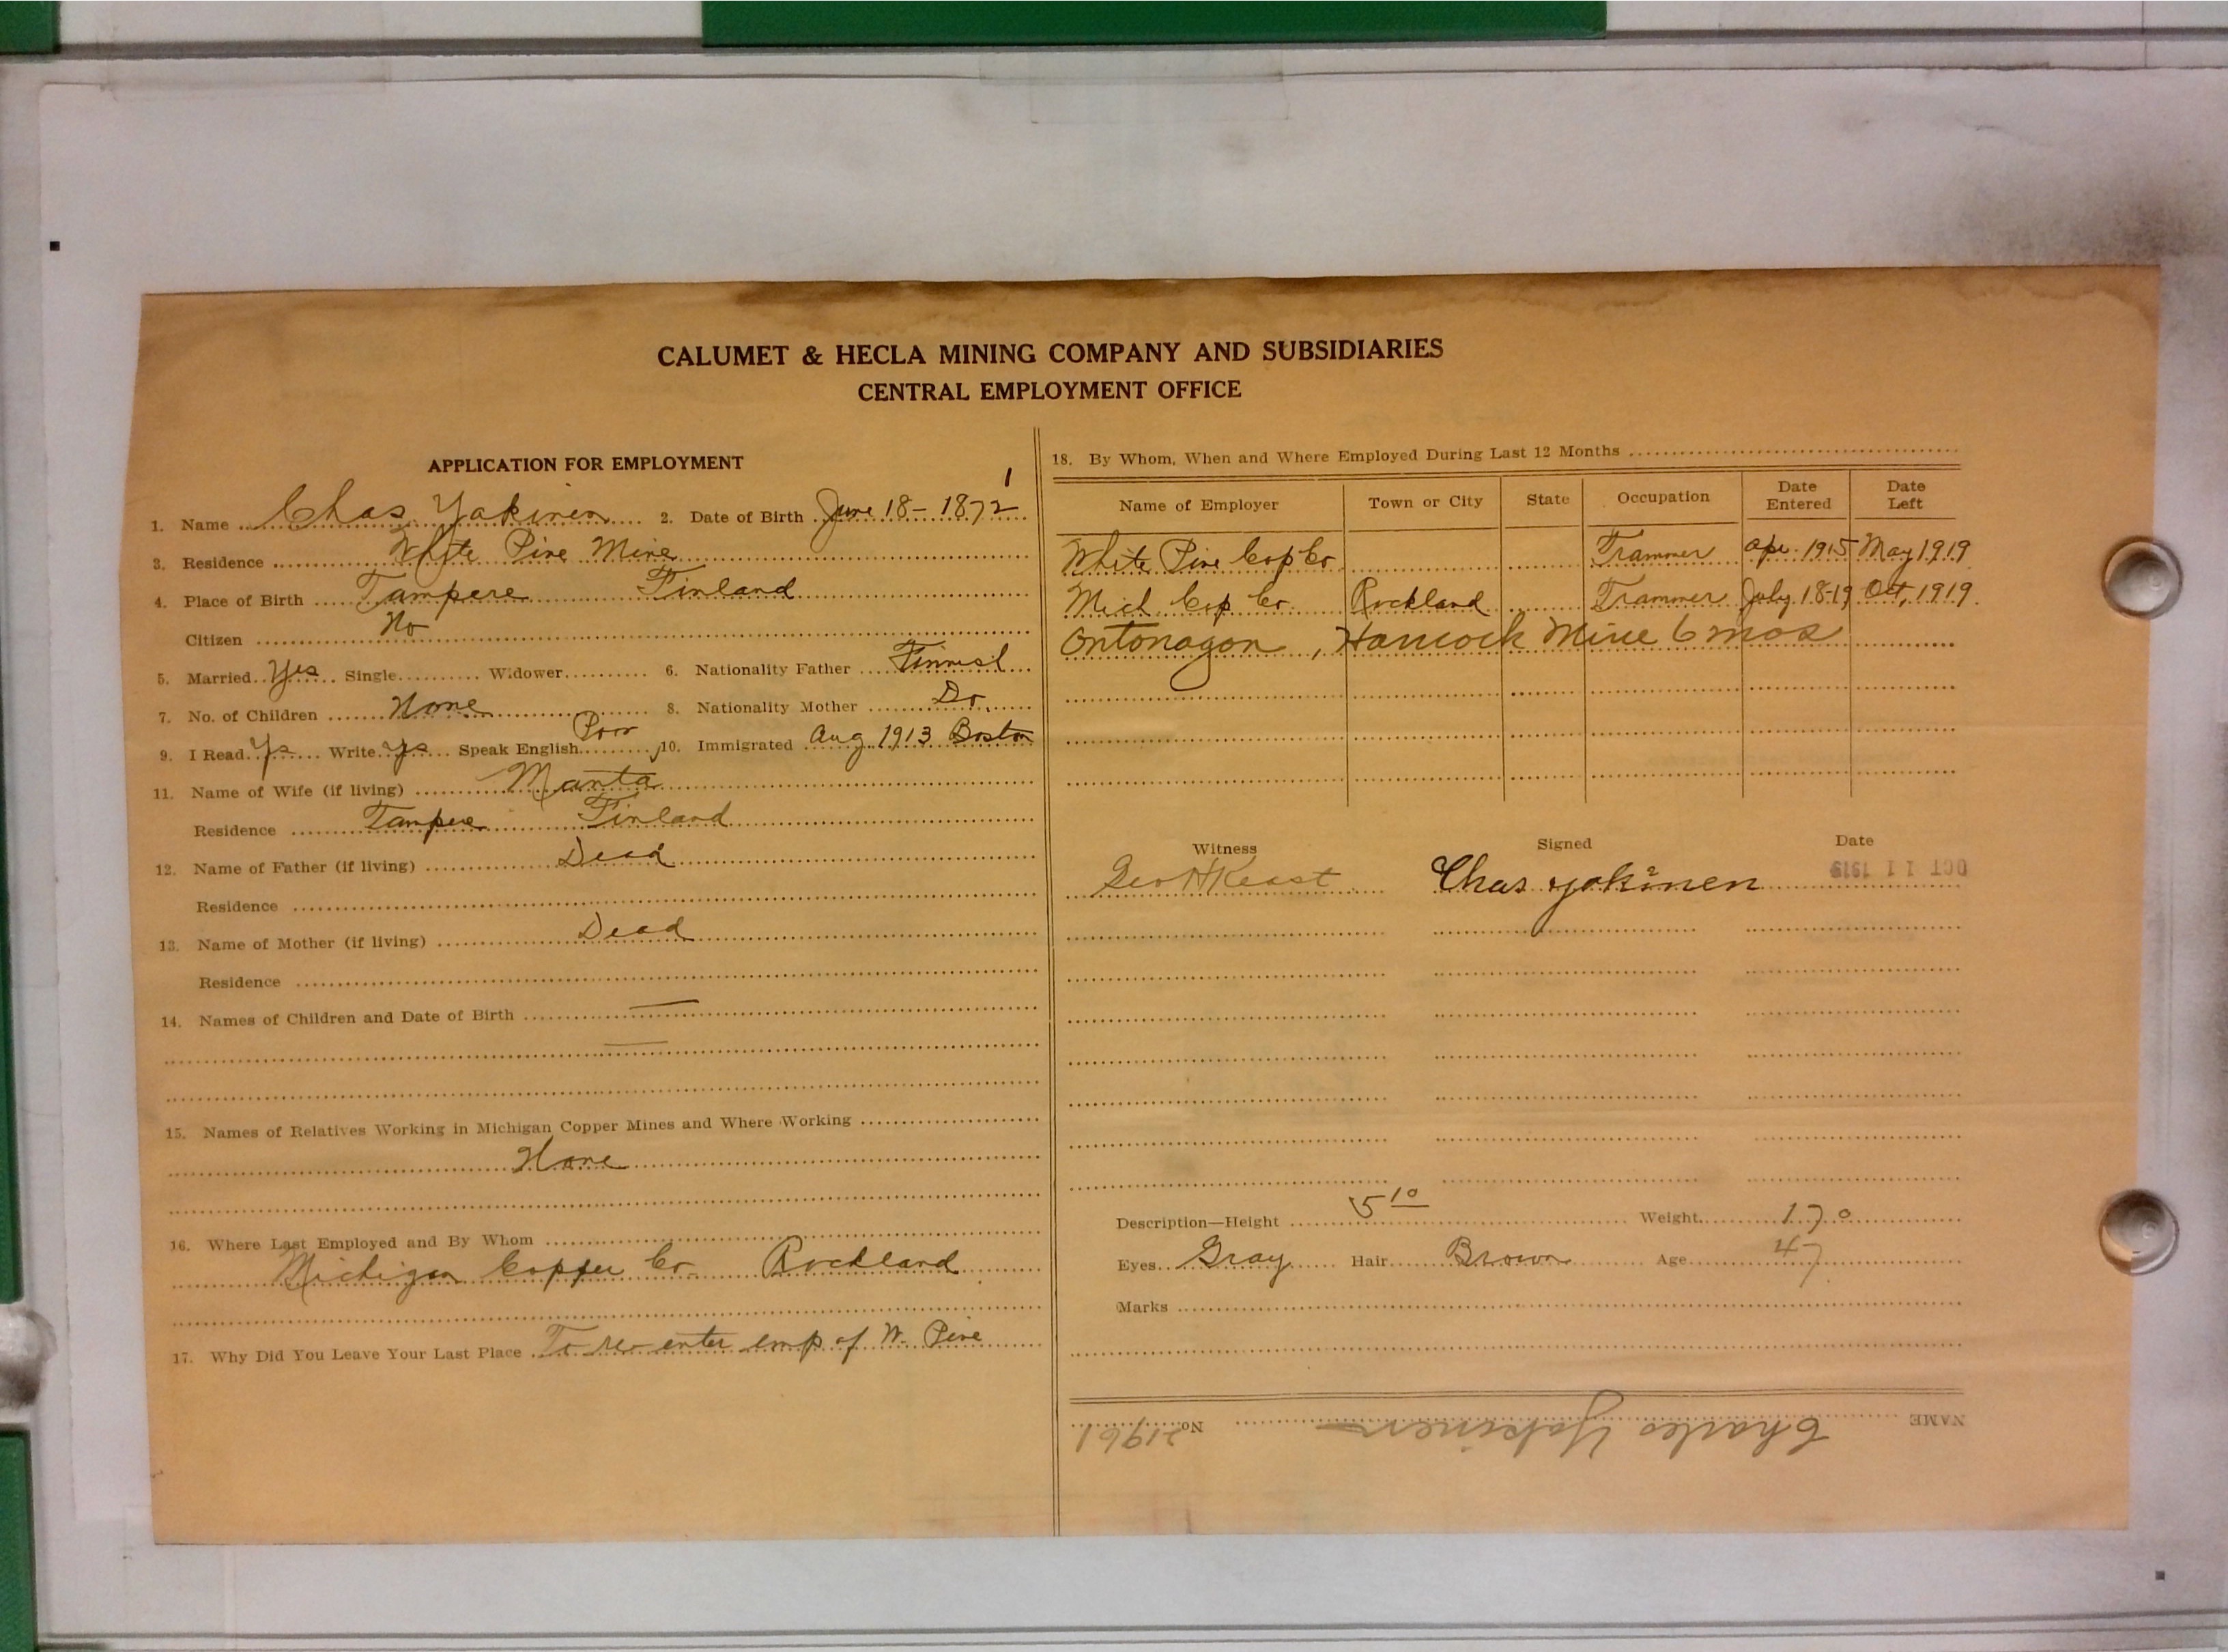 CALUMET & HECLA MINING COMPANY AND SUBSIDIARIES
CENTRAL EMPLOYMENT OFFICE
APPLICATION FOR EMPLOYMENT
1. Name Chas. Yakinen 2. Date of Birth June 18 - 1872
3. Residence White Pine Mine
4. Place of Birth Tampere Finland
Citizen No
5. Married Yes Single Widower 6. Nationality Father Finnish
7. No. of Children None 8. Nationality Mother Do.
9. I Read Ys Write Ys Speak English Poor 10. Immigrated Aug 1913 Boston
11. Name of Wife (if living) Manta
Residence Tampere Finland
12. Name of Father (if living) Dead
Residence
13. Name of Mother (if living) Dead
Residence
14. Names of Children and Date of Birth —
—
15. Names of Relatives Working in Michigan Copper Mines and Where Working
None
16. Where Last Employed and By Whom
Michigan Copper Co Rockland
17. Why Did You Leave Your Last Place To re-enter emp of W. Pine
18. By Whom, When and Where Employed During Last 12 Months
Name of Employer Town or City State Occupation Date Entered Date Left
White Pine Cop Co Trammer Apr. 1915 May 1919
Mich Cop Co. Rockland Trammer July 18-19 Oct, 1919
Ontonagon, Hancock Mine 6 mos
Witness Signed Date
Geo H Keast Chas yokinen OCT 11 1919
Description—Height 5 10 Weight 170
Eyes Gray Hair Brown Age 47
Marks
NAME Charles Yokinen No. 21961